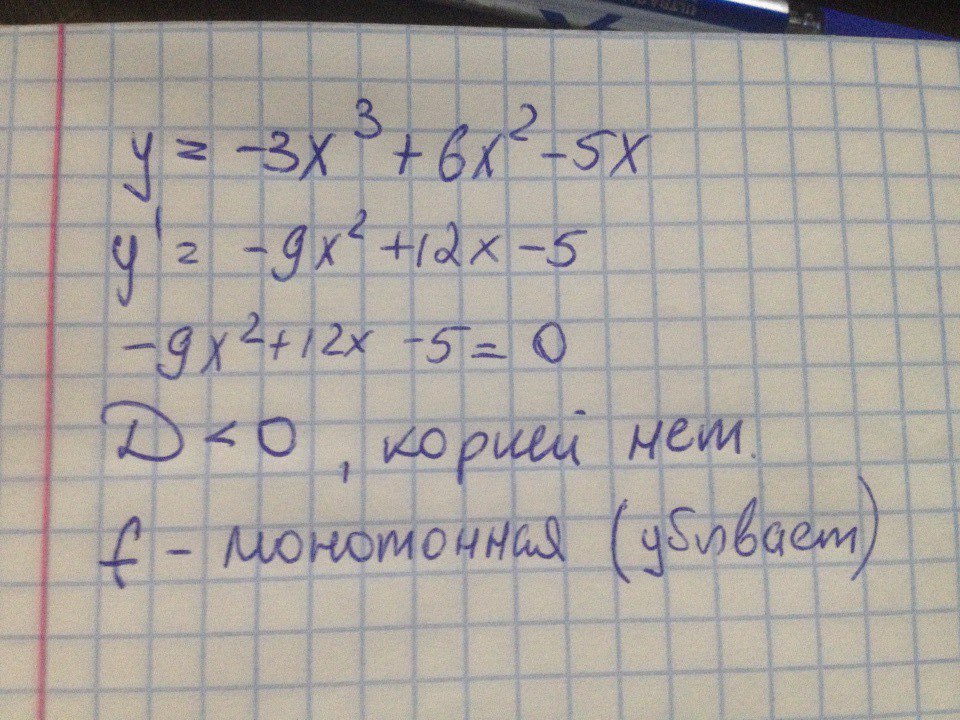 y = -3x³ + 6x² - 5x
y' = -9x² + 12x - 5
-9x² + 12x - 5 = 0
D < 0, корней нет.
f - монотонная (убывает)